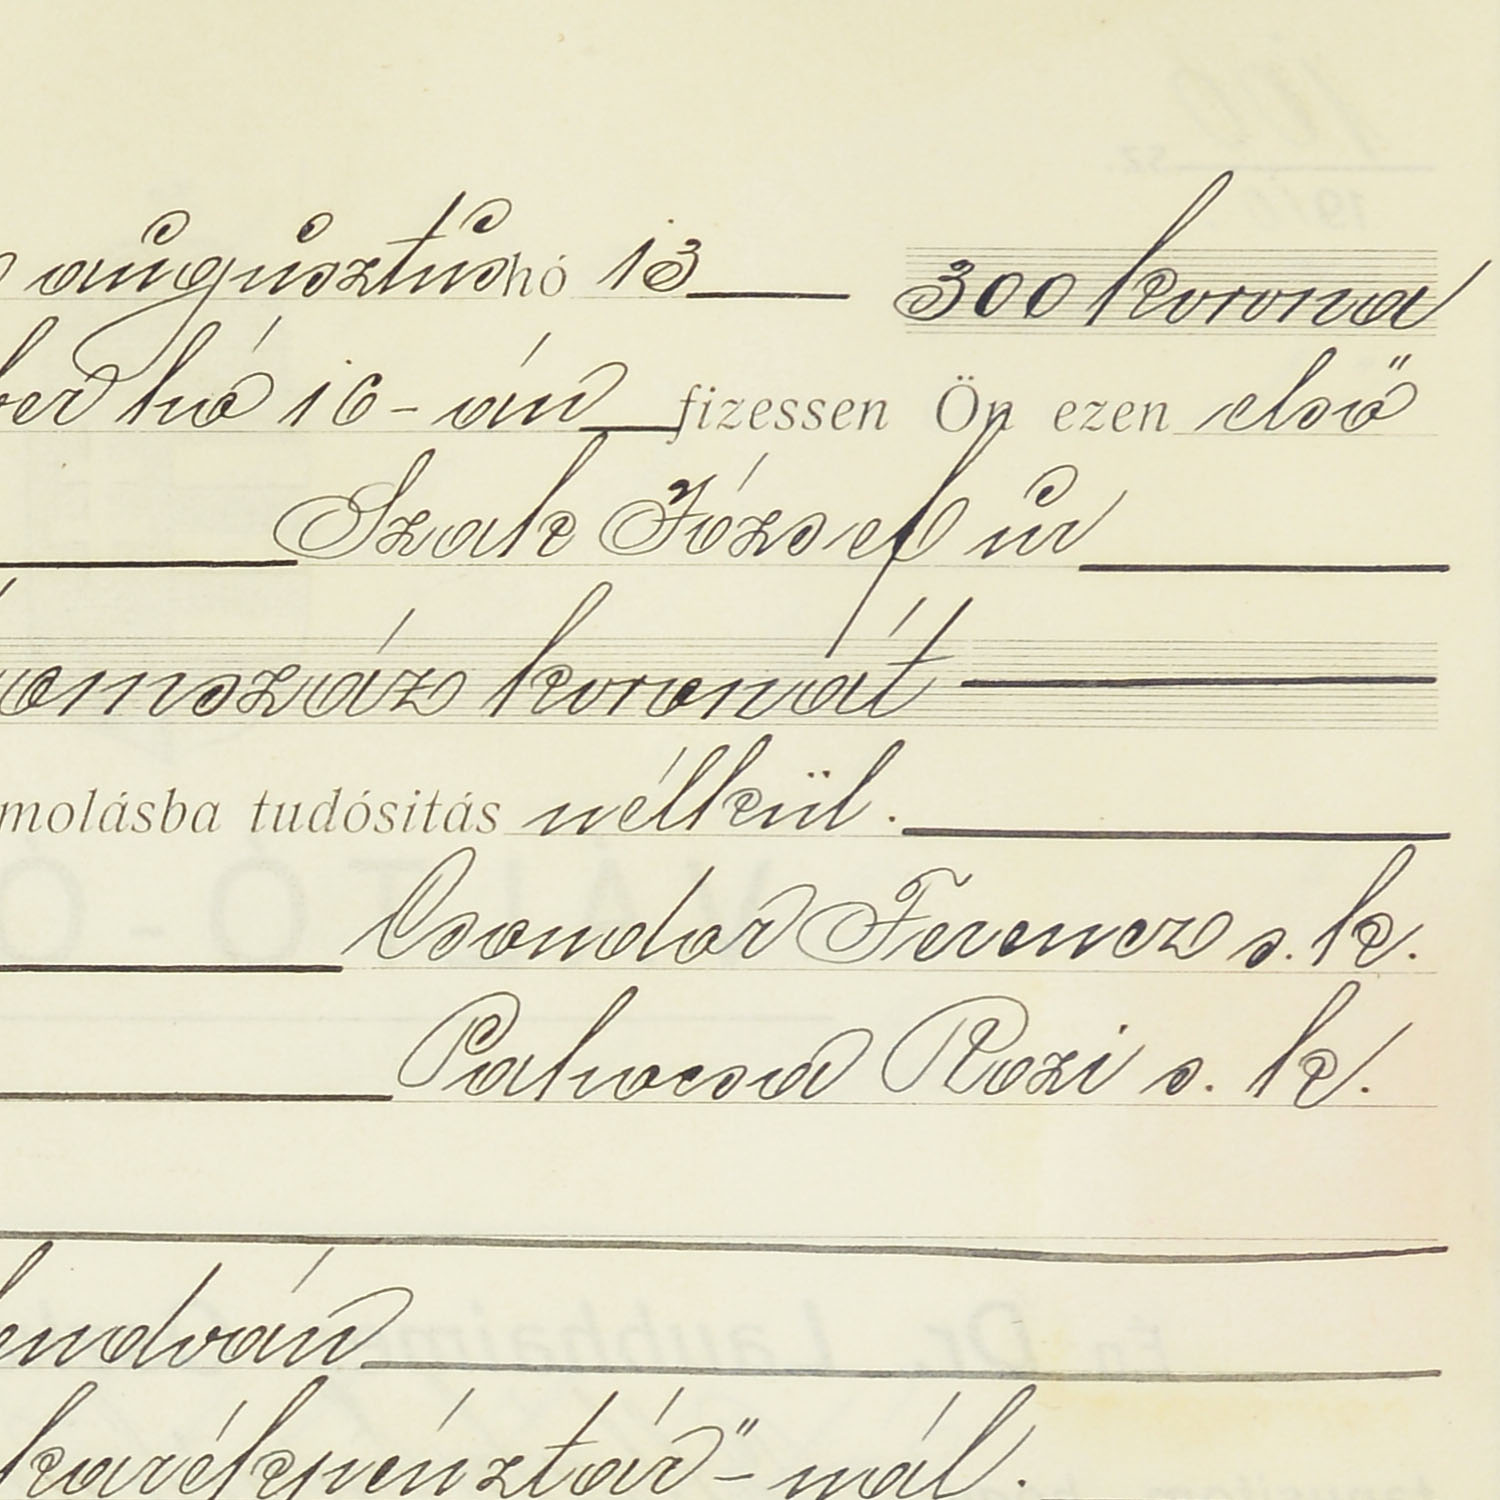 augusztus hó 13 300 korona
ber hó 16-án fizessen Ön ezen első
Szak József úr
omszáz koronát
molásba tudósitás nélkül.
Csondor Ferencz s. k.
Palucsa Rozi s. k.
lendván
karékpénztár"-nál.